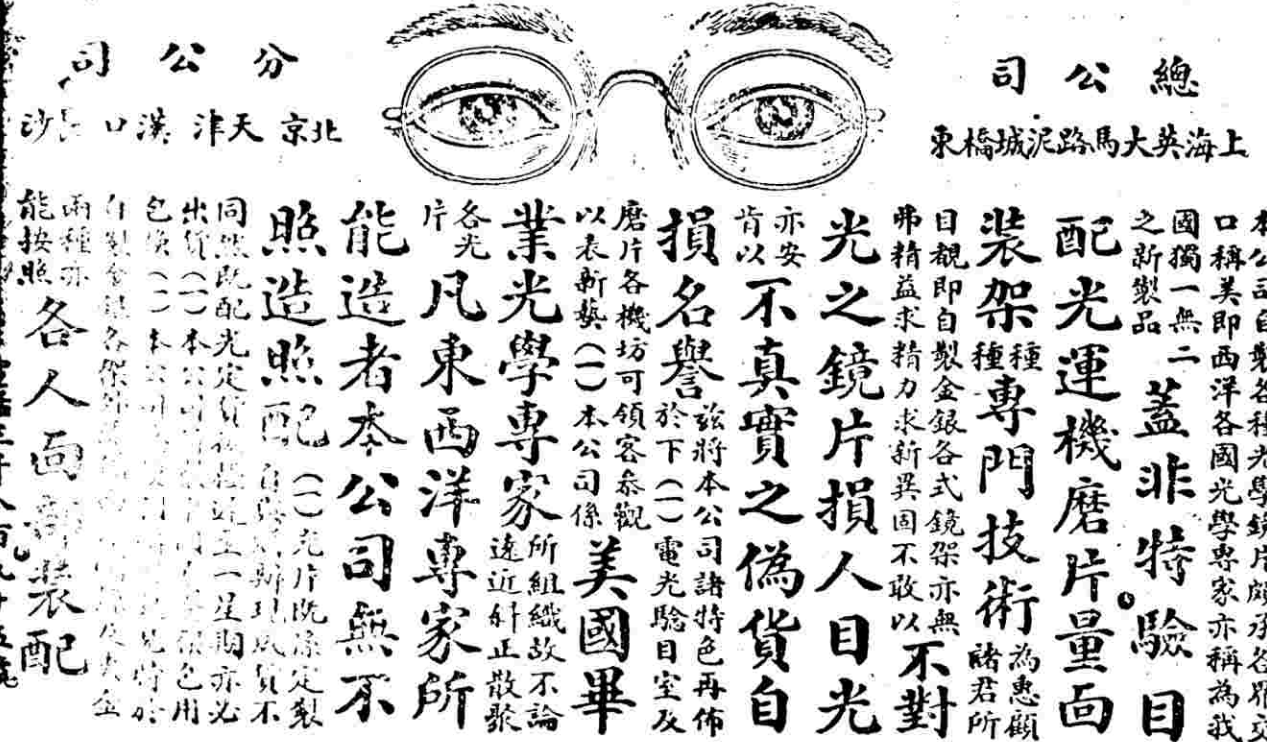 總公司
上海英大馬路泥城橋東
分公司
北京 天津 漢口 長沙
本公司自製各種光學鏡片頗承各界交
口稱美即西洋各國光學專家亦稱為我
國獨一無二
之新製品
蓋非特驗目
配光運機磨片量面
裝架種種專門技術
為惠顧
諸君所
目覩即自製金銀各式鏡架亦無
弗精益求精力求新異固不敢以
不對
光之鏡片損人目光
亦安
肯以
不真實之偽貨自
損名譽
茲將本公司諸特色再佈
於下(一)電光驗目室及
磨片各機坊可領客參觀
以表新藝(一)本公司係
美國畢
業光學專家
所組織故不論
遠近斜正散聚
各光
片
凡東西洋專家所
能造者本公司無不
照造照配
(一)光片既係定製
自與現成貨不
同然既配光定貨後至一星期亦必
出貨(一)本公司包用
包換(一)本公司
自製金銀各
兩種亦
能按照
各人面部裝配
千八百九十五號